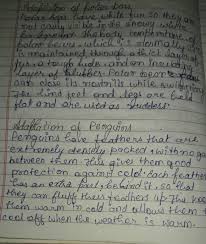 Adaptation of Polar bear
Polar bears have white fur so they are
not easily visible in the snowy white
The body
Polar bears which is normally
is maintained through a thick layer of
fur, a tough hide, and an insulating
layer of blubber. Polar bear
can slow its swimming
The hind feet and legs are held
flat and are used as rudders.
Adaptation of Penguins
Penguins have feathers that are
extremely densely packed with no gap
between them. This gives them good
protection against cold. Each feather
has an extra part behind it, so that
they can fluff their feathers up. This keep
them warm in cold and allows them to
cool off when the weather is warm.